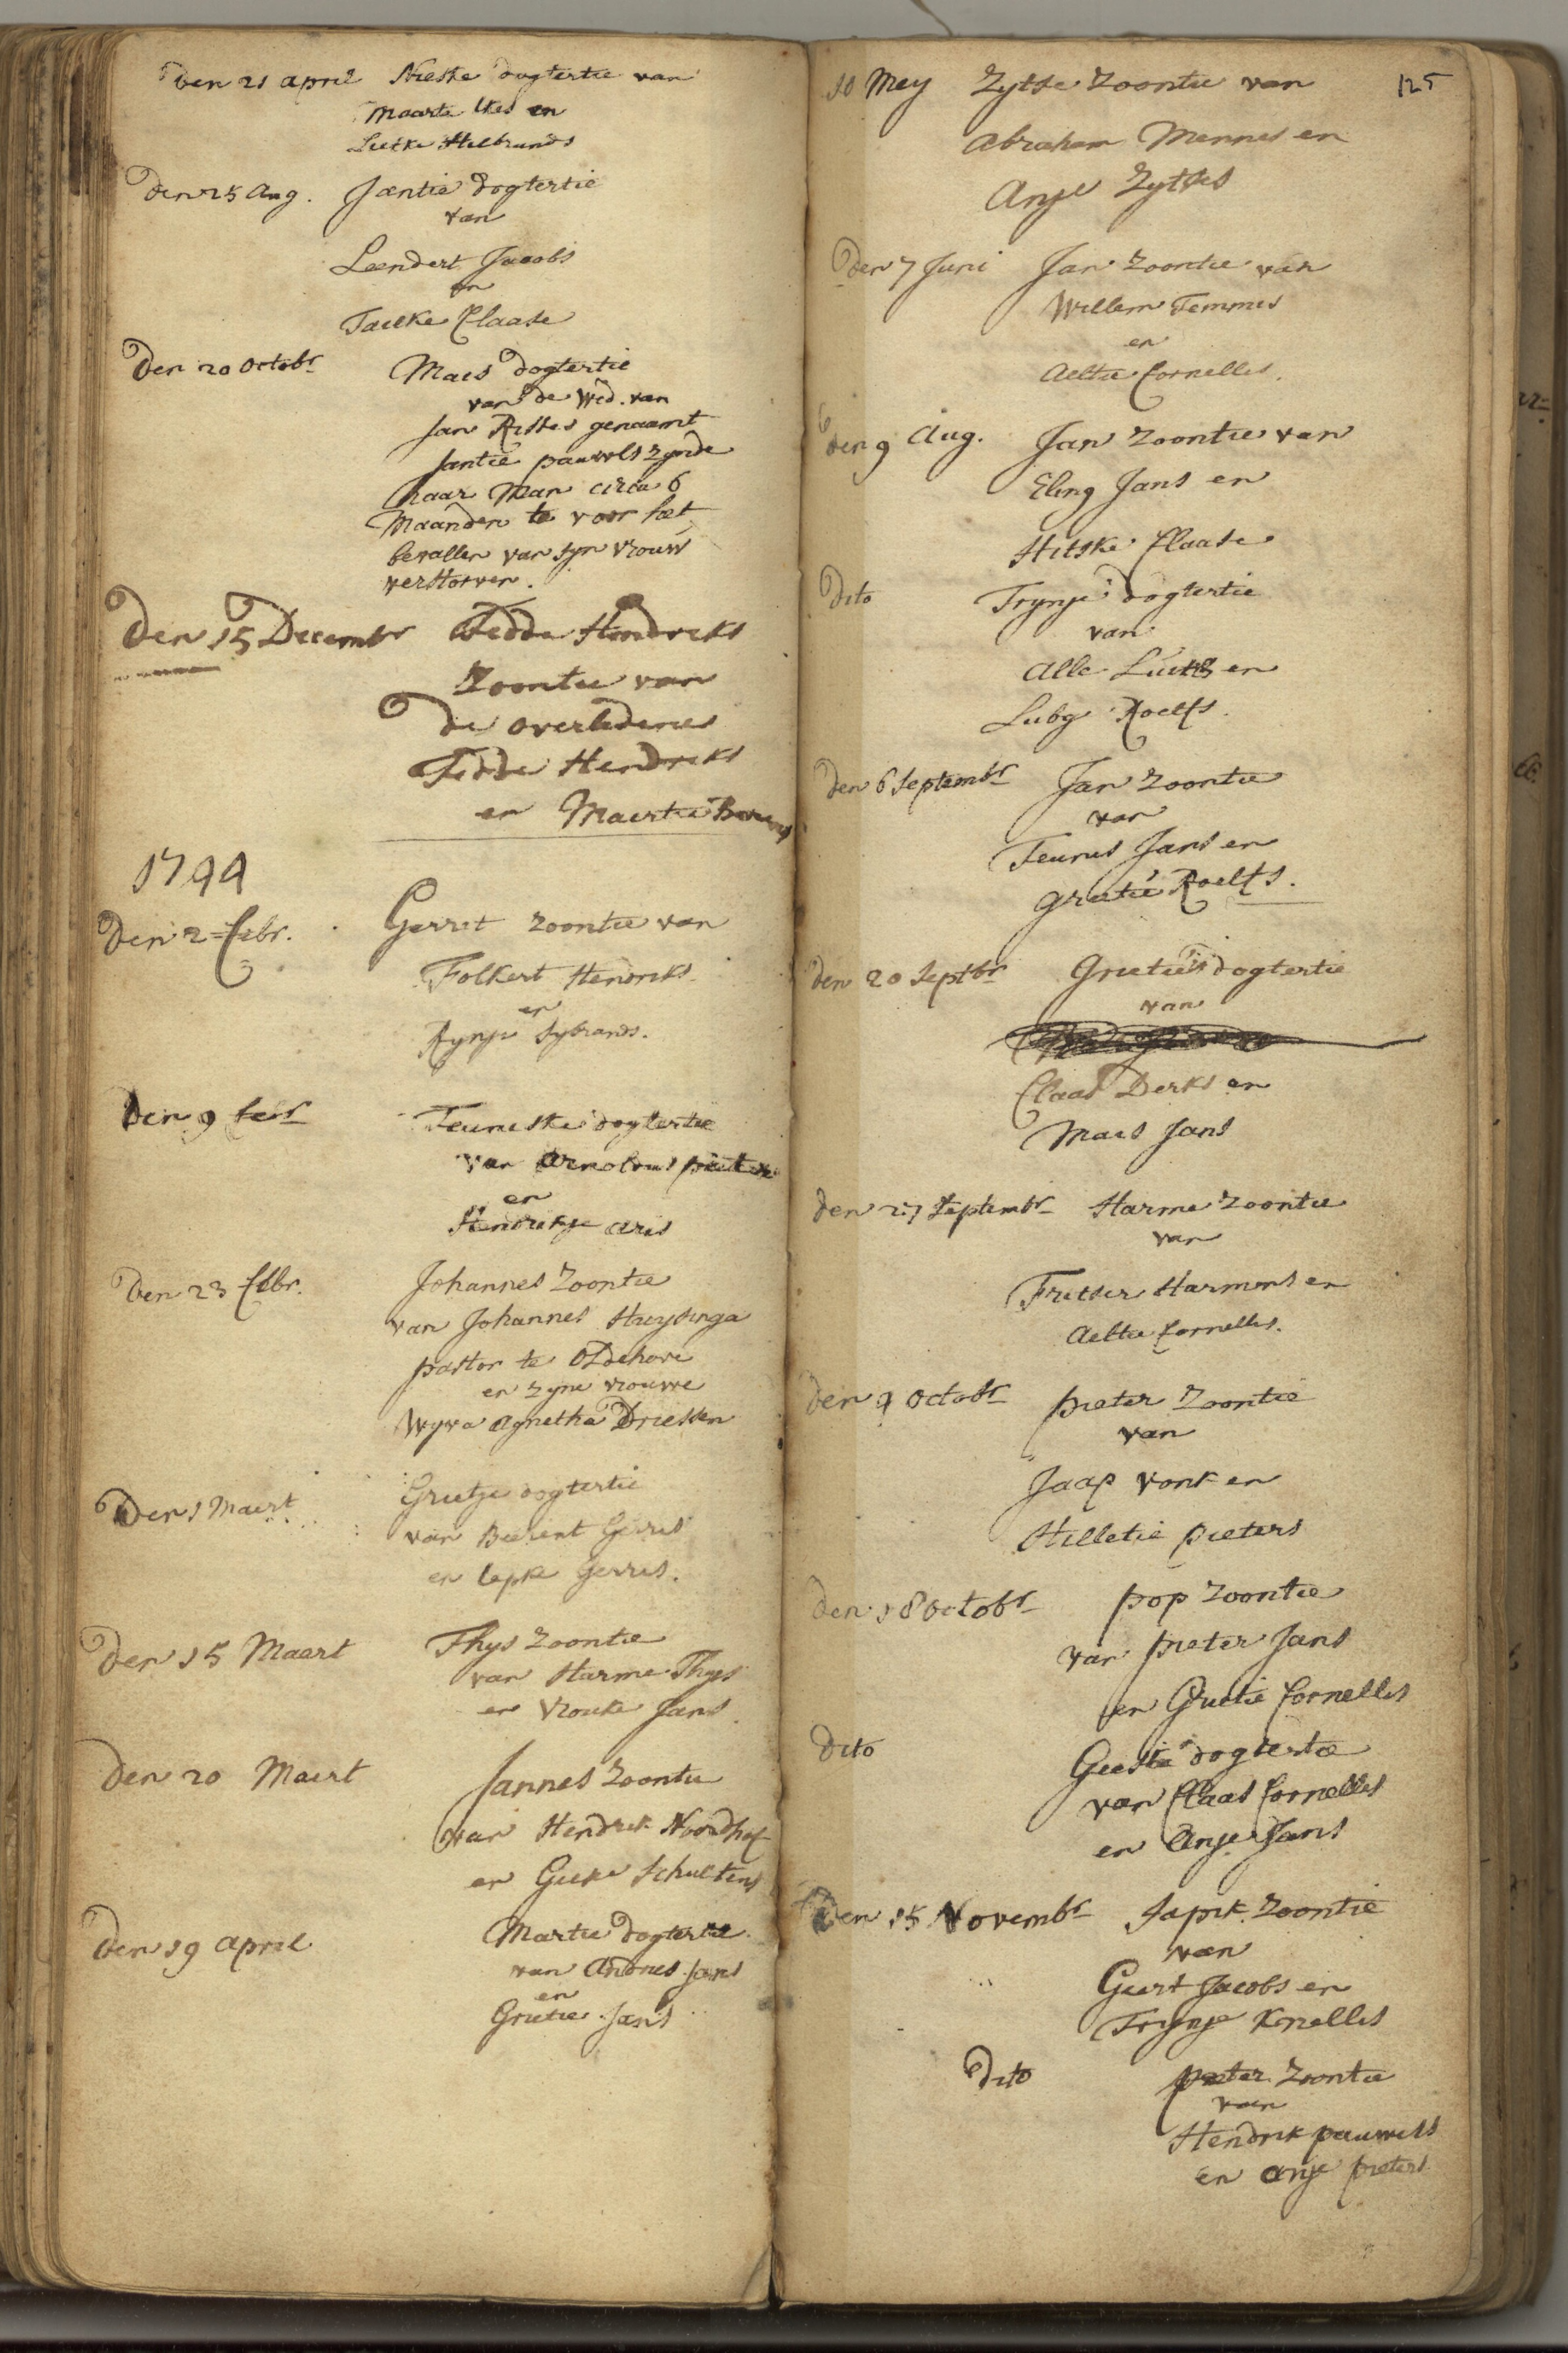 Den 21 april Nieske dogtertie van
Maarte Ities en
Lutke Hilbrands
Den 25 Aug. Jantie dogtertie
van
Leendert Jacobs
en
Taelke Claase
Den 20 Octobr Maes dogtertie
van de Wed. van
Jan Ritses genaamt
Jantie pauwels zynde
haar Man circa 6
Maanden te voor het
bevallen van syn vrouw
verstorven.
Den 15 Decembr Fedde Hendreks
Zoontie van
de overledenes
Fedde Hendreks
en Maertie
1744
Den 2 Febr. Gerrit zoontie van
Folkert Hendreks
en
Rynje Sybrands.
Den 9 febr Teuneske dogtertie
van Arnoldus pieters
en
Hendrikje aris
Den 23 febr. Johannes Zoontie
van Johannes Huysinga
pastor te Oldehove
en zyne vrouwe
Wywa Agnetha Driessen
Den 1 Maert Grietje dogtertie
van Beerent Gerris
en Lepke Gerris.
Den 15 Maert Thys Zoontie
van Harme Thys
en Vrouke Jans
Den 20 Maert Jannes Zoontie
van Hendrek Noordhof
en Gieke Schultens
Den 19 april Martie dogtertie
van Andries Jans
en
Grietie Jans
125
10 Mey Zytse Zoontie van
Abraham Mennes en
Anje Zytses
Den 7 Juni Jan Zoontie van
Willem Temmes
en
Aeltie Cornelles.
Den 9 Aug. Jan Zoontie van
Eling Jans en
Hitske Claase
Dito Trynje dogtertie
van
Alle Luitks en
Lubge Roelfs.
Den 6 Septembr Jan Zoontie
van
Teunes Jans en
Grietie Roelfs.
Den 20 Septbr Grietie dogtertie
van
Claas Derks en
Maes Jans
Den 27 Septembr Harme Zoontie
van
Fritser Harmens en
Aeltie Cornelles.
Den 9 Octobr pieter Zoontie
van
Jaap vonk en
Hilletie pieters
Den 18 octobr pop Zoontie
van pieter Jans
en Grietie Cornelles
Dito Geeske dogtertie
van Claas Cornelles
en Anje Jans
Den 15 Novembr Japik Zoontie
van
Geert Jacobs en
Trijnje Kornelles
Dito pieter Zoontie
van
Hendrik pauwels
en Anje pieters